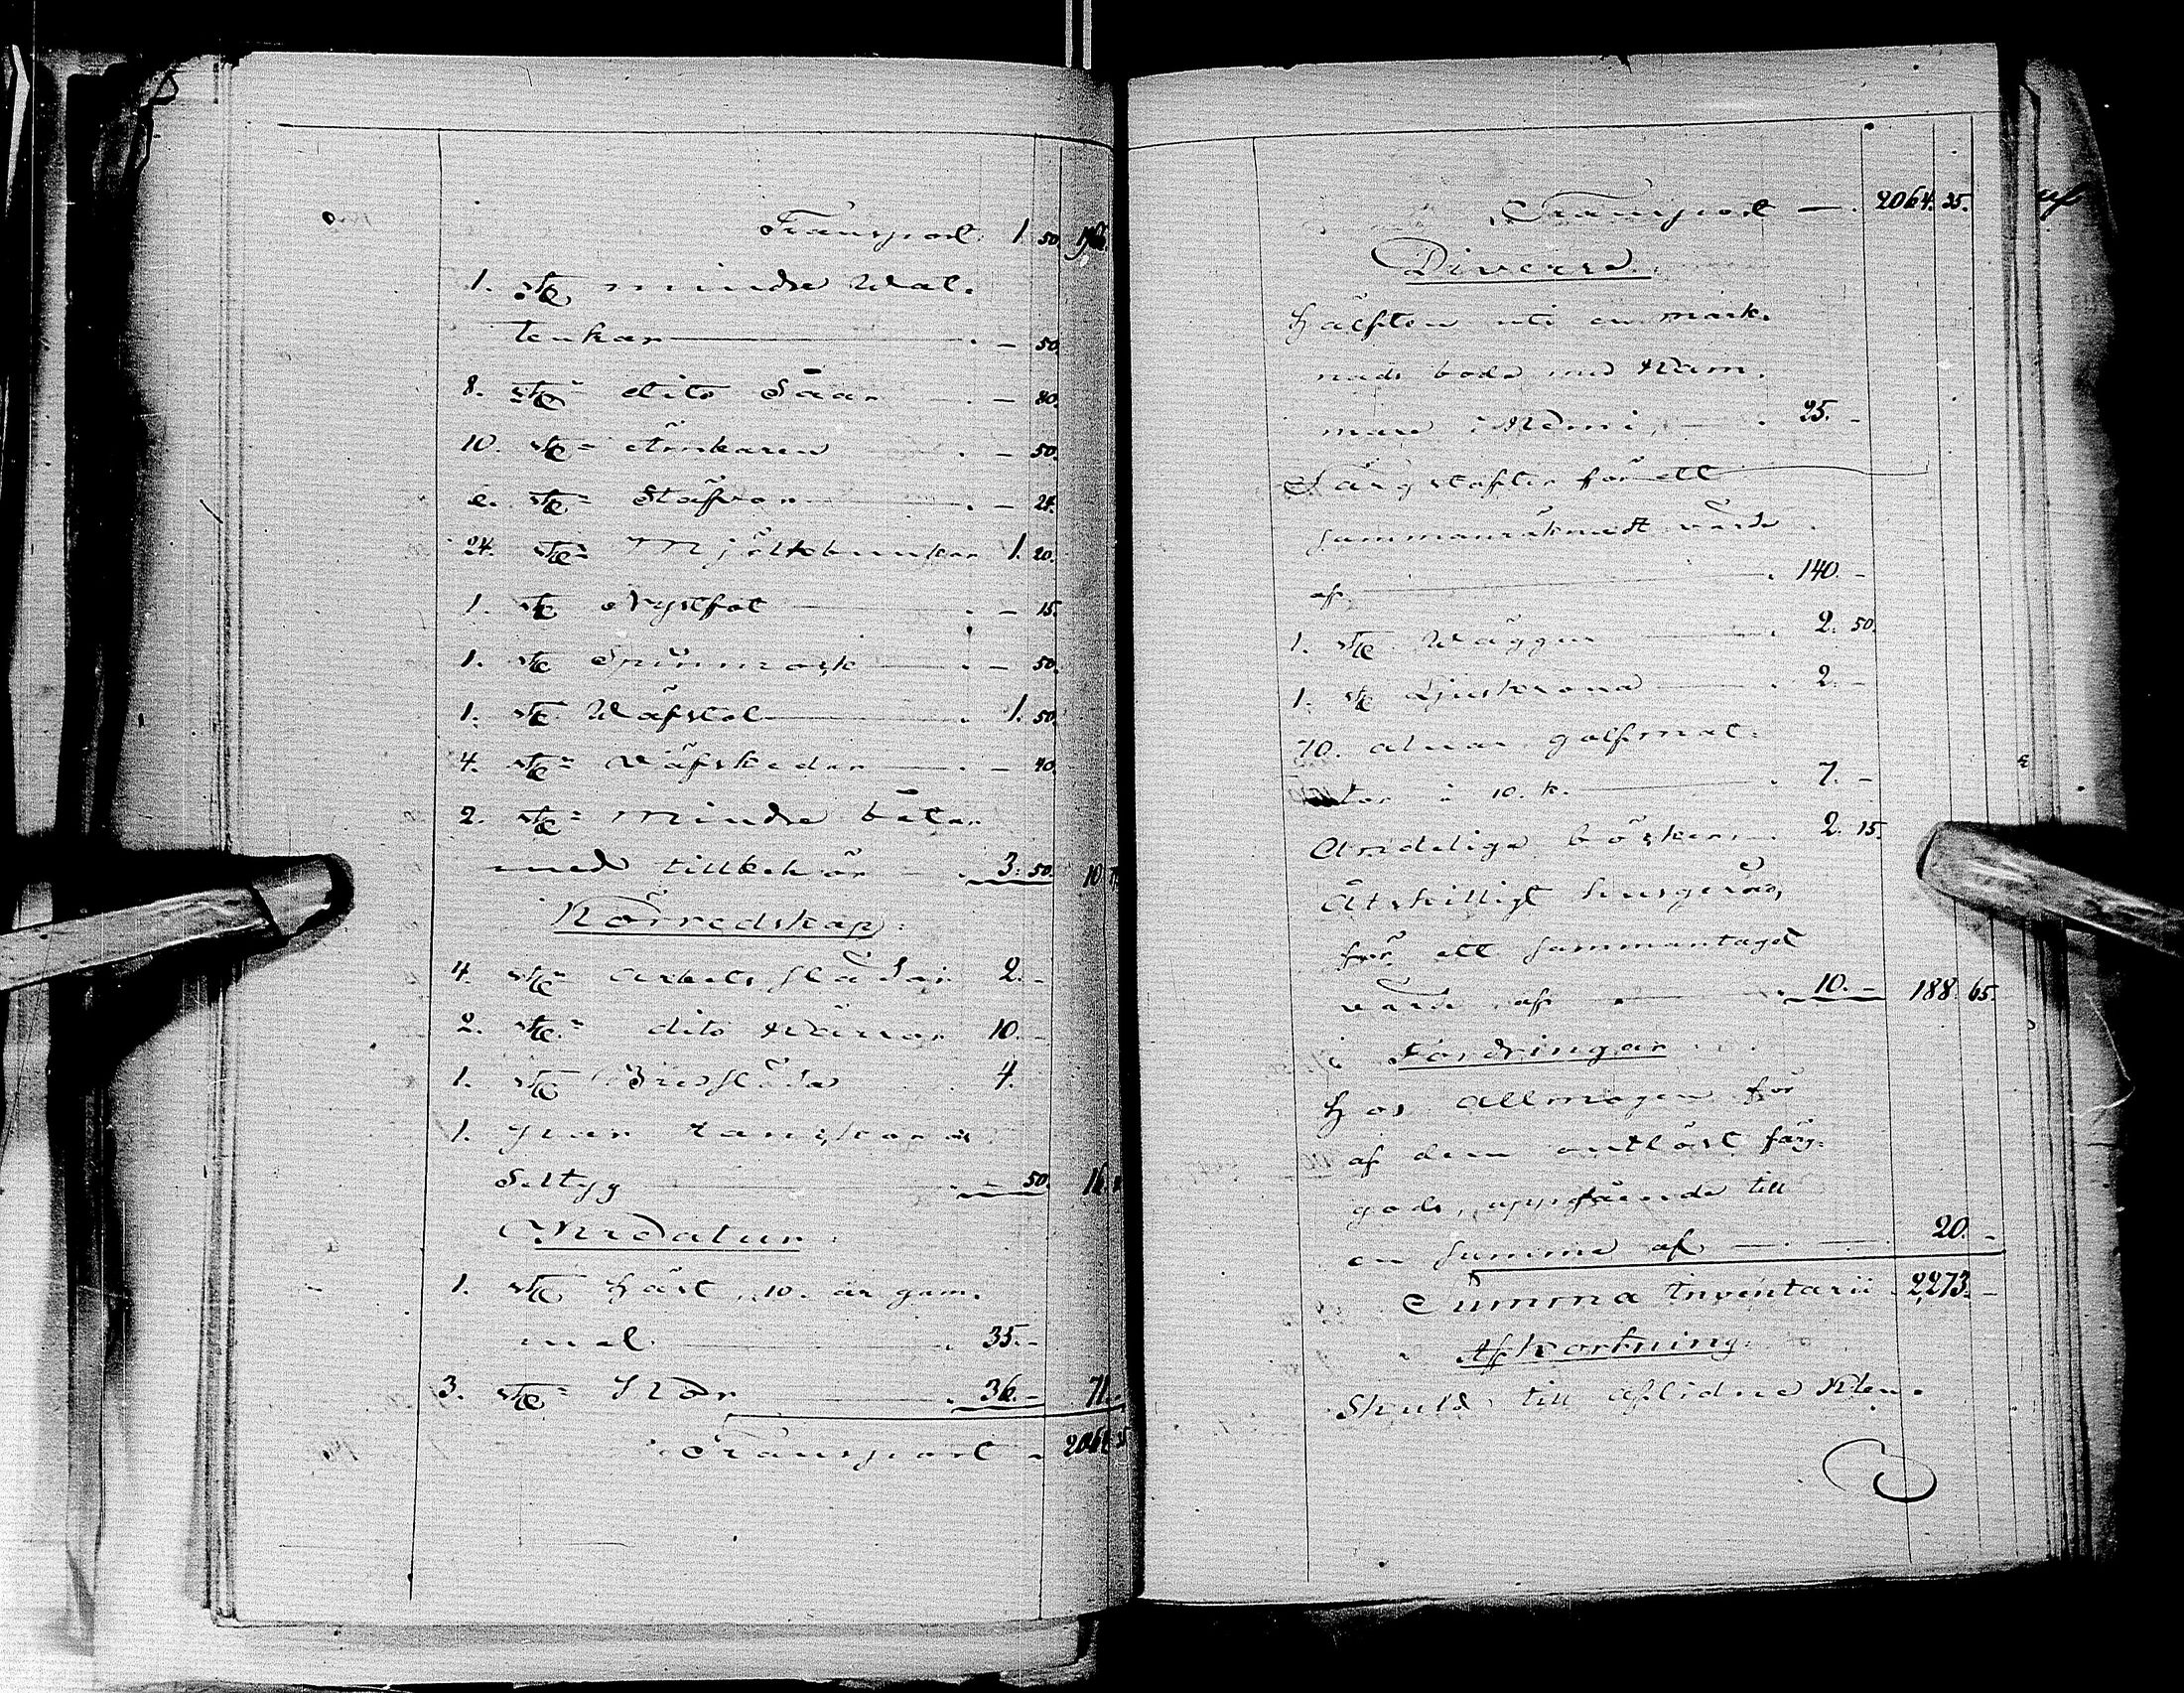 Transport 1. 50.
1. st. mindre Wat-
tenkar — 50.
8. st. dito Såar — 80.
10. st. Ämbaren — 50.
2. st. Stäfvor — 24.
24. st. Mjölkbunkar 1. 20.
1. st. Nystfot — 15.
1. st. Spinnrock — 50.
1. st. Wäfstol 1. 50.
4. st. Wäfskedar — 40.
2. st. mindre båtar
med tillbehör 3. 50. 10
Körredskap:
4. st. arbets slädar 2. -
2. st. dito kärror 10. -
1. st. Åkesläda 4.
1. par
Seltyg — 50. 16
Kreatur.
1. st. häst, 10. år gam-
mal 35. -
3. st. Kor 36. - 71.
Transport 2064
Transport — 2064. 35.
Diverse.
Hälften uti en mark-
nads bode med kam-
mare i Kemi, 25. -
Färgstofter för ett
sammanräknadt värde
af 140. -
1. st. Wäggur 2. 50.
1. st. Ljuskrona 2. -
70. alnar golfmat-
tor à 10. k. 7. -
Andeliga böcker 2. 15.
Åtskilligt husgeråd,
för ett sammantaget
värde af 10. - 188. 65.
Fordringar
Hos Allmogen för
af dem outlöst färg-
gods, uppgående till
en summa af 20. -
Summa Inventarii 2,273. -
Afkortning:
Skuld till aflidne Klem-